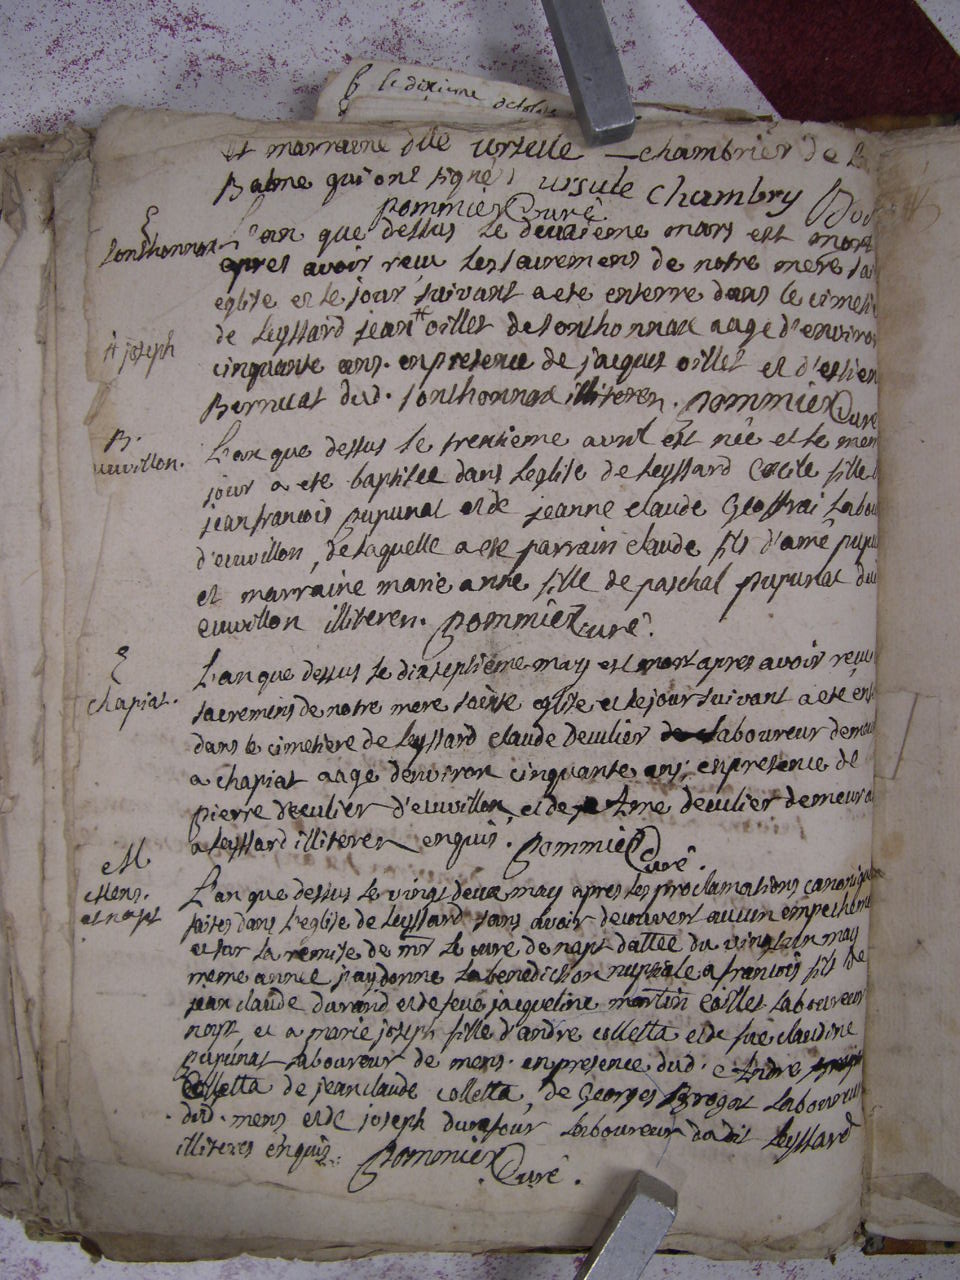 le dixieme octobre
et marraine dlle ursulle chambrier de
Balme qui ont signé ursule Chambry
pommier Curé
L'an que dessus le deuxieme mars est mort
sonthonnax
apres avoir reçu les sacremens de notre mere
eglise et le jour suivant a ete enterre dans le
de leyssard jean oillet de sonthonnax aagé d'environ
# joseph
cinquante ans. en presence de jacques oillet et d'estien
Bernuat dud. sonthonnax illiteren. pommier Curé
B.
L'an que dessus le trentieme avril est née et le mem
euvillon.
jour a ete baptisee dans l'eglise de leyssard Cecile fille
jean francois pupunat et de jeanne claude Geoffrai labou
d'euvillon, de laquelle a ete parrain claude fils d'amé pupu
et marraine marie anne fille de paschal pupunat du
euvillon illiteren. pommier curé.
L'an que dessus le dixseptieme may est mort apres avoir reçu
chapiat.
sacremens de notre mere sainte eglise et le jour suivant a ete en
dans le cimetiere de leyssard claude Deculier laboureur demeu
a chapiat aagé d'environ cinquante ans; en presence de
pierre deculier d'euvillon, et de Ame deculier demeura
a leyssard illiteren enquis. pommier Curé.
M
L'an que dessus le vingt deux may apres les proclamations canonique
Mens.
faites dans l'eglise de leyssard sans avoir decouvert aucun empecheme
et napt
et sur la remise de mr le curé de napt dattee du vingt un may
meme annee j'ay donné la benediction nuptiale a francois fils de
jean claude durand et de feue jacqueline martin laboureur
napt, et a marie joseph fille d'andre colletta et de fue claudine
pupunat laboureur de mens. en presence dud. Andre
Colletta de jean claude colletta, de Georges Brogat laboureur
dud. mens et de joseph dufour laboureur dudit leyssard
illiteres enquis. pommier Curé.